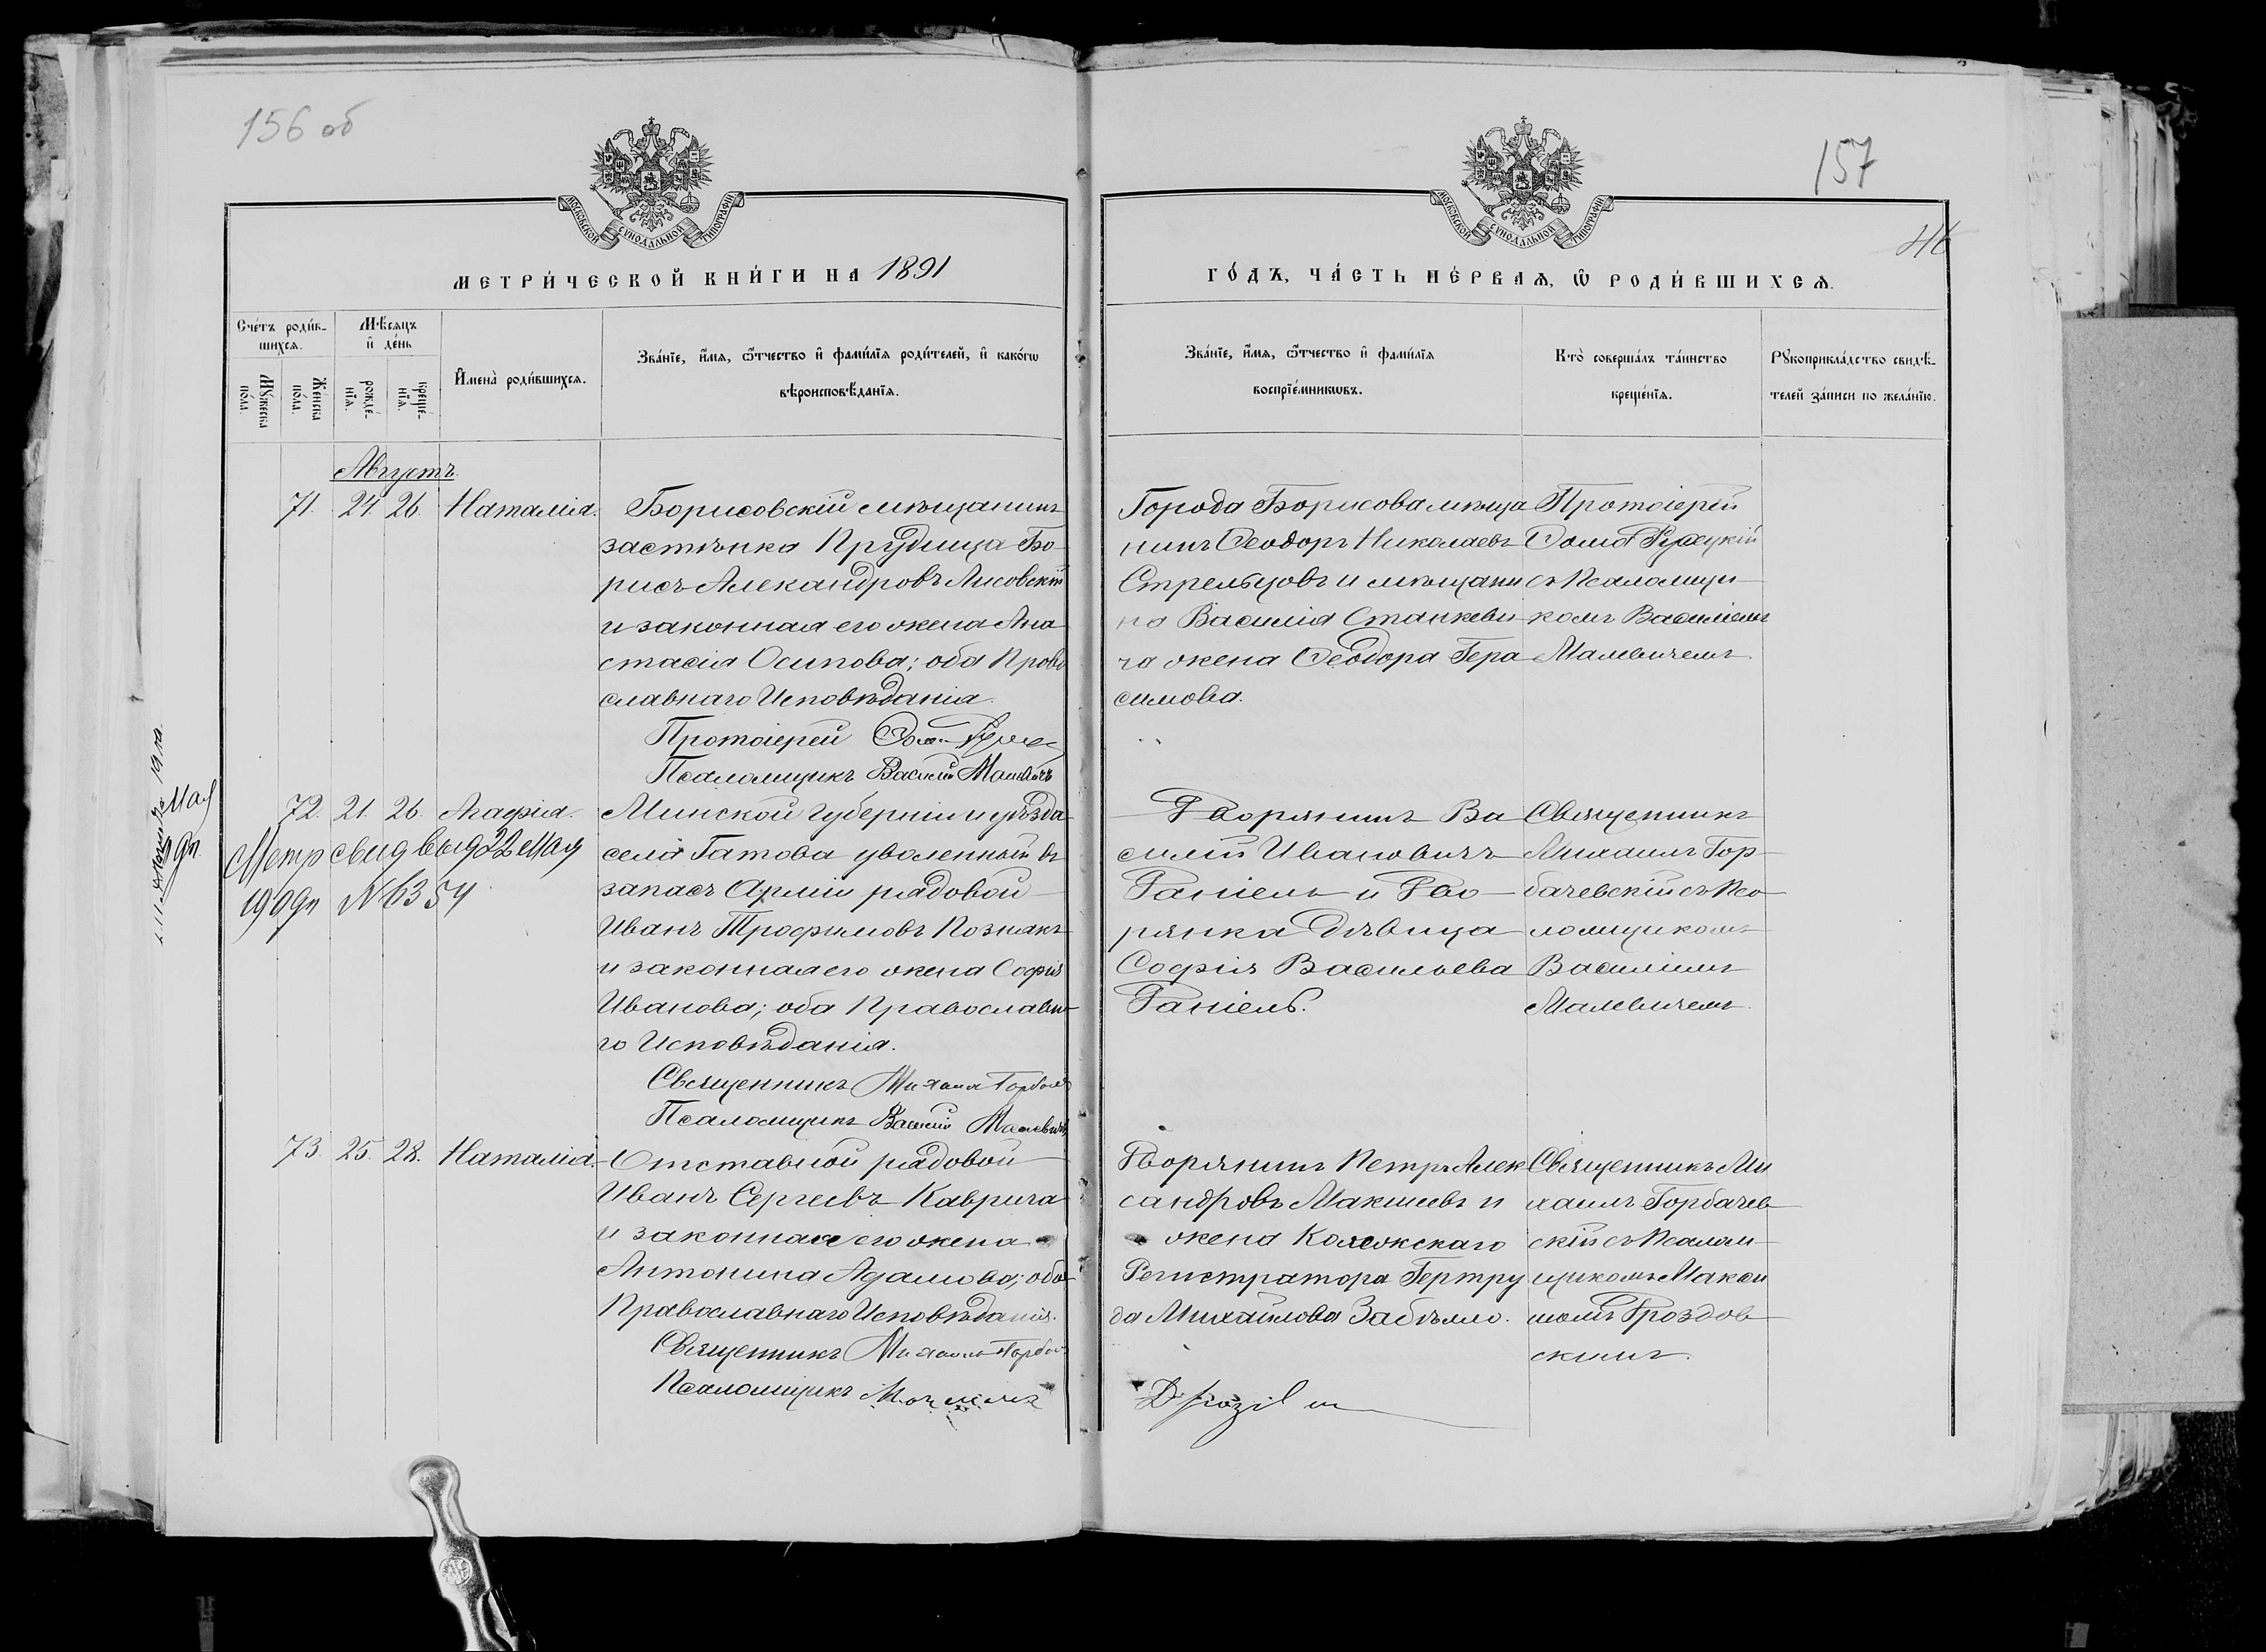 156 об
МОСКОВСКОЙ СѴНОДАЛЬНОЙ ТИПОГРАФІИ
МЕТРИ́ЧЕСКОЙ КНИ́ГИ НА 1891
Сче́тъ роди́в-
шихсѧ.
Мѣ́сѧцъ
и҆ де́нь
Мꙋ́жеска
по́ла.
Же́нска
по́ла.
рожде́-
нїѧ.
креще́-
нїѧ.
И҆мена̀ роди́вшихсѧ.
Зва́нїе, и҆́мѧ, ѻ҆́тчество и҆ фами́лїѧ роди́телей, и҆ како́гѡ
вѣроисповѣ́данїѧ.
Августъ.
71. 24. 26. Наталія.
Борисовскій мѣщанинъ
застѣнка Прудища Бо-
рисъ Александровъ Лисовскій
и законная его жена Ана
стасія Осипова; оба Право
славнаго Исповѣданія.
Протоіерей
Псаломщикъ Василій Малевичъ
72. 21. 26. Агафія.
Минской губерніи и уѣзда
села Гатова уволенный въ
запасъ Арміи рядовой
Иванъ Трофимовъ Познякъ
и законная его жена Софія
Иванова; оба Православна
го Исповѣданія.
Священникъ Михаилъ Горбач
Псаломщикъ Василій Малевичъ
Метр свид выд 22 Мая
1909 г N 6354
73. 25. 28. Наталія.
Отставной рядовой
Иванъ Сергѣевъ Каврига
и законная его жена
Антонина Адамова; оба
Православнаго Исповѣданія.
Священникъ Михаилъ Горбач
Псаломщикъ
157
46
МОСКОВСКОЙ СѴНОДАЛЬНОЙ ТИПОГРАФІИ
ГО́ДЪ, ЧА́СТЬ ПЕ́РВАѦ, Ѡ҆ РОДИ́ВШИХСѦ.
Зва́нїе, и҆́мѧ, ѻ҆́тчество и҆ фами́лїѧ
воспрїе́мникѡвъ.
Кто̀ соверша́лъ та́инство
креще́нїѧ.
Рꙋкоприкла́дство свидѣ́-
телей за́писи по жела́нїю.
Города Борисова мѣща
нинъ Ѳеодоръ Николаевъ
Стрельцовъ и мѣщани
на Василія Станкеви
ча жена Ѳеодора Гера
симова.
Протоіерей
Ѳома Русецкій
съ Псаломщи
комъ Василіемъ
Малевичемъ.
Дворянинъ Ва
силій Ивановичъ
Даніель и Дво
рянка Дѣвица
Софія Васильева
Даніель.
Священникъ
Михаилъ Гор-
бачевскій съ Пса
ломщикомъ
Василіемъ
Малевичемъ.
Дворянинъ Петръ Алек
сандровъ Макшеевъ и
жена Коллежскаго
Регистратора Гертру
да Михайлова Забѣлло.
Священникъ Ми
хаилъ Горбачев
скій съ Псалом
щикомъ Макси
момъ Дроздов
скимъ.